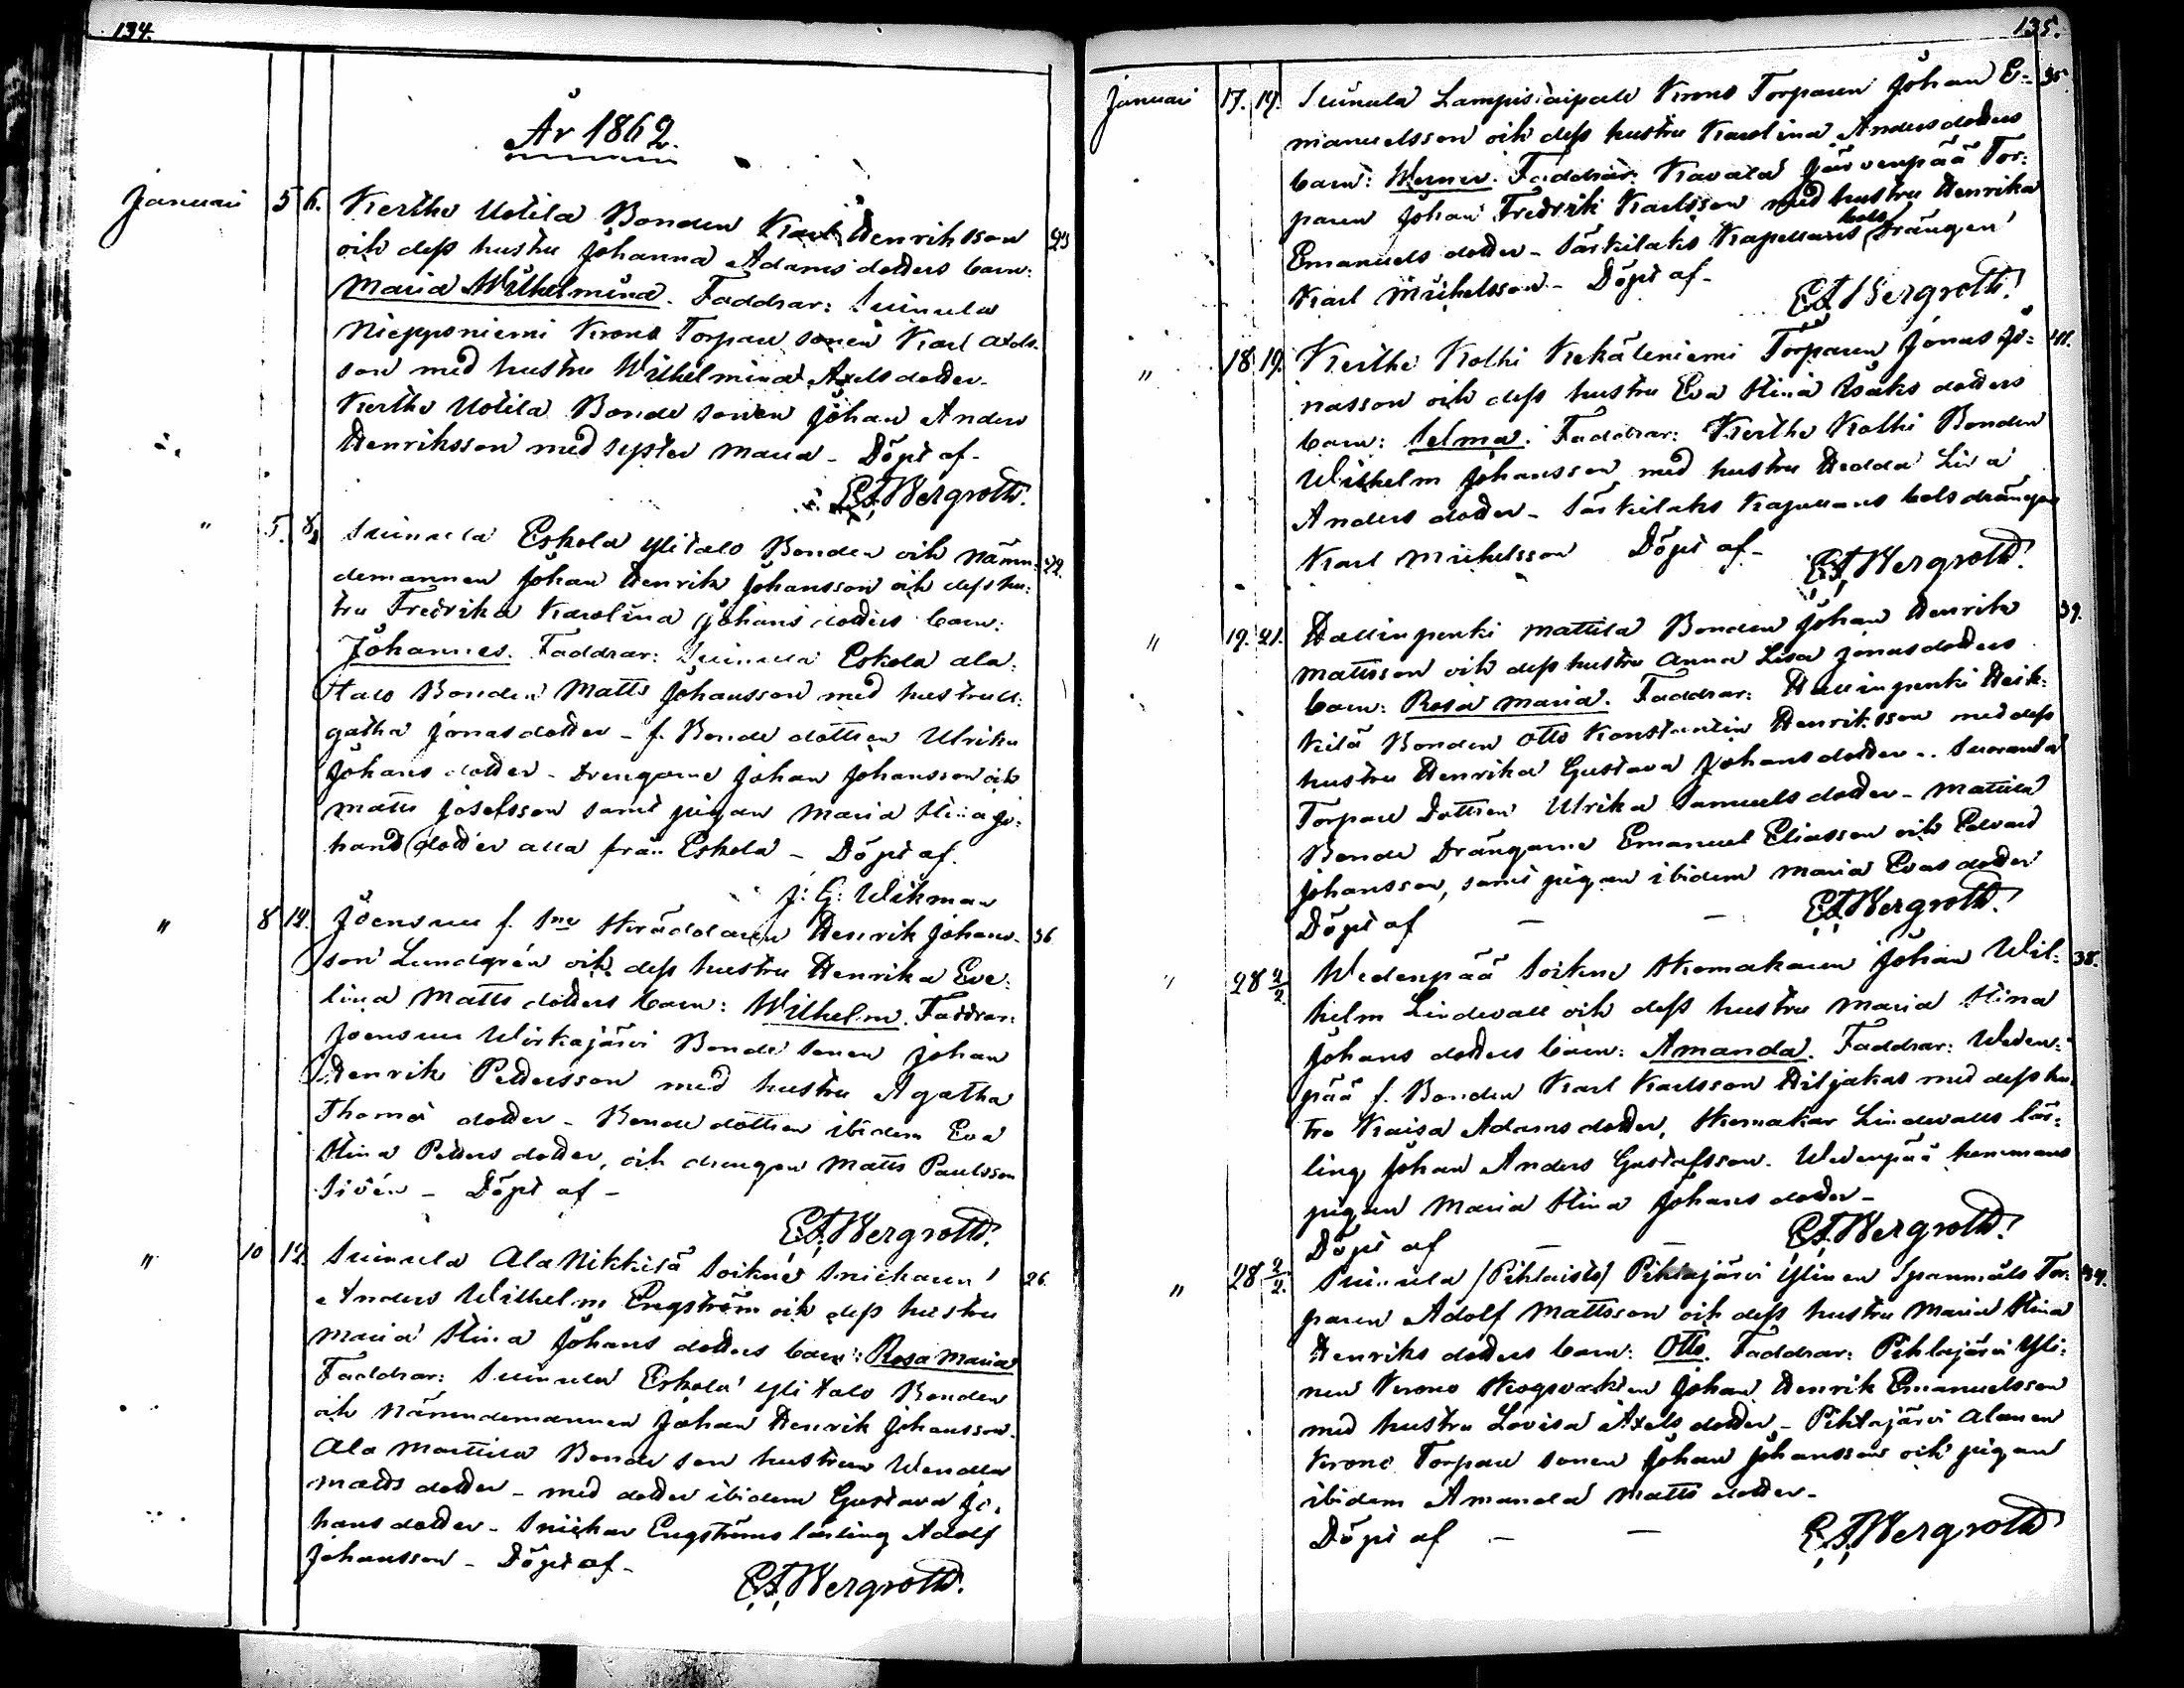 134.
År 1862.
Januari 5 6. Kerthe Uotila Bonden Karl Henriksson 23
och dess hustru Johanna Adams dotters barn:
Maria Wilhelmina. Faddrar: Suinula
Niepponiemi Krono Torpare sonen Karl Adols-
son med hustru Wilhelmina Axels dotter.
Kerthe Uotila Bonde sonen Johan Anders
Henriksson med syster Maria - Döpt af -
E.J. Bergroth.
" 5. 8. Suinula Eskola ylitalo Bonden och Nämn- 22.
demannen Johan Henrik Johansson och dess hu-
tru Fredrika Karolina Johans dotters barn:
Johannes. Faddrar: Suinula Eskola ala-
talo Bonden Matts Johansson med hustru A:
gatha Jonas dotter - f. Bonde dottren Ulrika
Johans dotter - Drengarne Johan Johansson och
Matts Josefsson samt pigan Maria Stina Jo-
hans dotter alla från Eskola - Döpt af.
J: G: Wikman
" 8 12. Joensuu f. Sne Skräddaren Henrik Johans- 36
son Lundgrén och dess hustru Henrika Eve-
lina Matts dotters barn: Wilhelm. Faddrar:
Joensuu Wirkajärvi Bonde sonen Johan
Henrik Pettersson med hustru Agatha
Thomæ dotter - Bonde dottren ibidem Eva
Stina Petters dotter, och drengen Matts Paulsson
Sivén - Döpt af -
E.J. Bergroth.
" 10 12. Suinula Ala Nikkilä Soikne Snickaren 26.
Anders Wilhelm Engström och dess hustru
Maria Stina Johans dotters barn: Rosa Maria
Faddrar: Suinula Eskola ylitalo Bonden
och Nämndemannen Johan Henrik Johansson.
Ala Marttila Bonde son hustrun Wendla
Matts dotter - med dotter ibidem Gustava Jo-
hans dotter - Snickar Engströms lärling Adolf
Johansson - Döpt af -
E.J. Bergroth.
135.
Januari 17. 19. Suinula Lampistaipale Krono Torparen Johan E- 35.
manuelsson och dess hustru Karolina Anders dotters
barn: Werner. Faddrar: Kavala Järvenpää Tor-
paren Johan Fredrik Karlsson med hustru Henrika
Emanuels dotter - Särkilaks Kapellans bols drängen
Karl Michelsson - Döpt af -
E.J. Bergroth.
" 18 19. Kerthe Kolhi Kekäleniemi Torparen Jonas Jo- 41.
nasson och dess hustru Eva Stina Isaks dotters
barn: Selma. Faddrar: Kerthe Kolhi Bonden
Wilhelm Johansson med hustru Hedda Lisa
Anders dotter - Särkilaks Kapellans bols drängen
Karl Michelsson Döpt af -
E.J. Bergroth.
" 19. 21. Hallinpenki Mattila Bonden Johan Henrik 39.
Mattsson och dess hustru Anna Lisa Jonas dotters
barn: Rosa Maria. Faddrar: Hallinpenki Heik-
kilä Bonden Otto Konstantin Henriksson med dess
hustru Henrika Gustava Johans dotter - Suoranta
Torpare Dottren Ulrika Samuels dotter - Mattila
Bonde Drängarne Emanuel Eliasson och Edvard
Johansson, samt pigan ibidem Maria Evas dotter
Döpt af - - E.J. Bergroth.
" 28 2/2. Wedenpää Soikne Skomakaren Johan Wil- 38.
helm Lindevall och dess hustru Maria Stina
Johans dotters barn: Amanda. Faddrar: Weden-
pää f. Bonden Karl Karlsson Hiljakas med dess hu-
tru Kaisa Adams dotter, Skomakar Lindevalls lär-
ling Johan Anders Gustafsson. Wedenpää hemmans
pigan Maria Stina Johans dotter -
Döpt af - - E.J. Bergroth.
" 28 2/2. Suinula /Pihlaisto/ Pihlajärvi Ylinen Spannmåls Tor- 34.
paren Adolf Mattsson och dess hustru Maria Stina
Henriks dotters barn: Otto. Faddrar: Pihlajärvi Yli-
nen Krono Skogsvakten Johan Henrik Emanuelsson
med hustru Lovisa Axels dotter - Pihlajärvi Alanen
Krono Torpare sonen Johan Johansson och pigan
ibidem Amanda Matts dotter -
Döpt af - - E.J. Bergroth